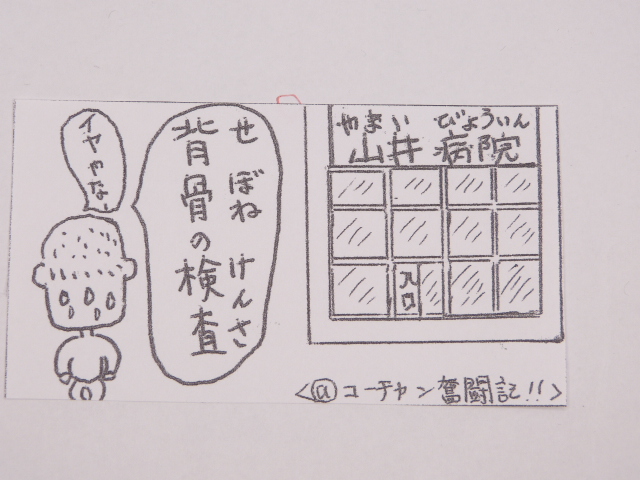 やまい びょういん
山井病院
入口
せぼね けんさ
背骨の検査
イヤやなぃ
<ⓐコーチャン奮闘記!!>